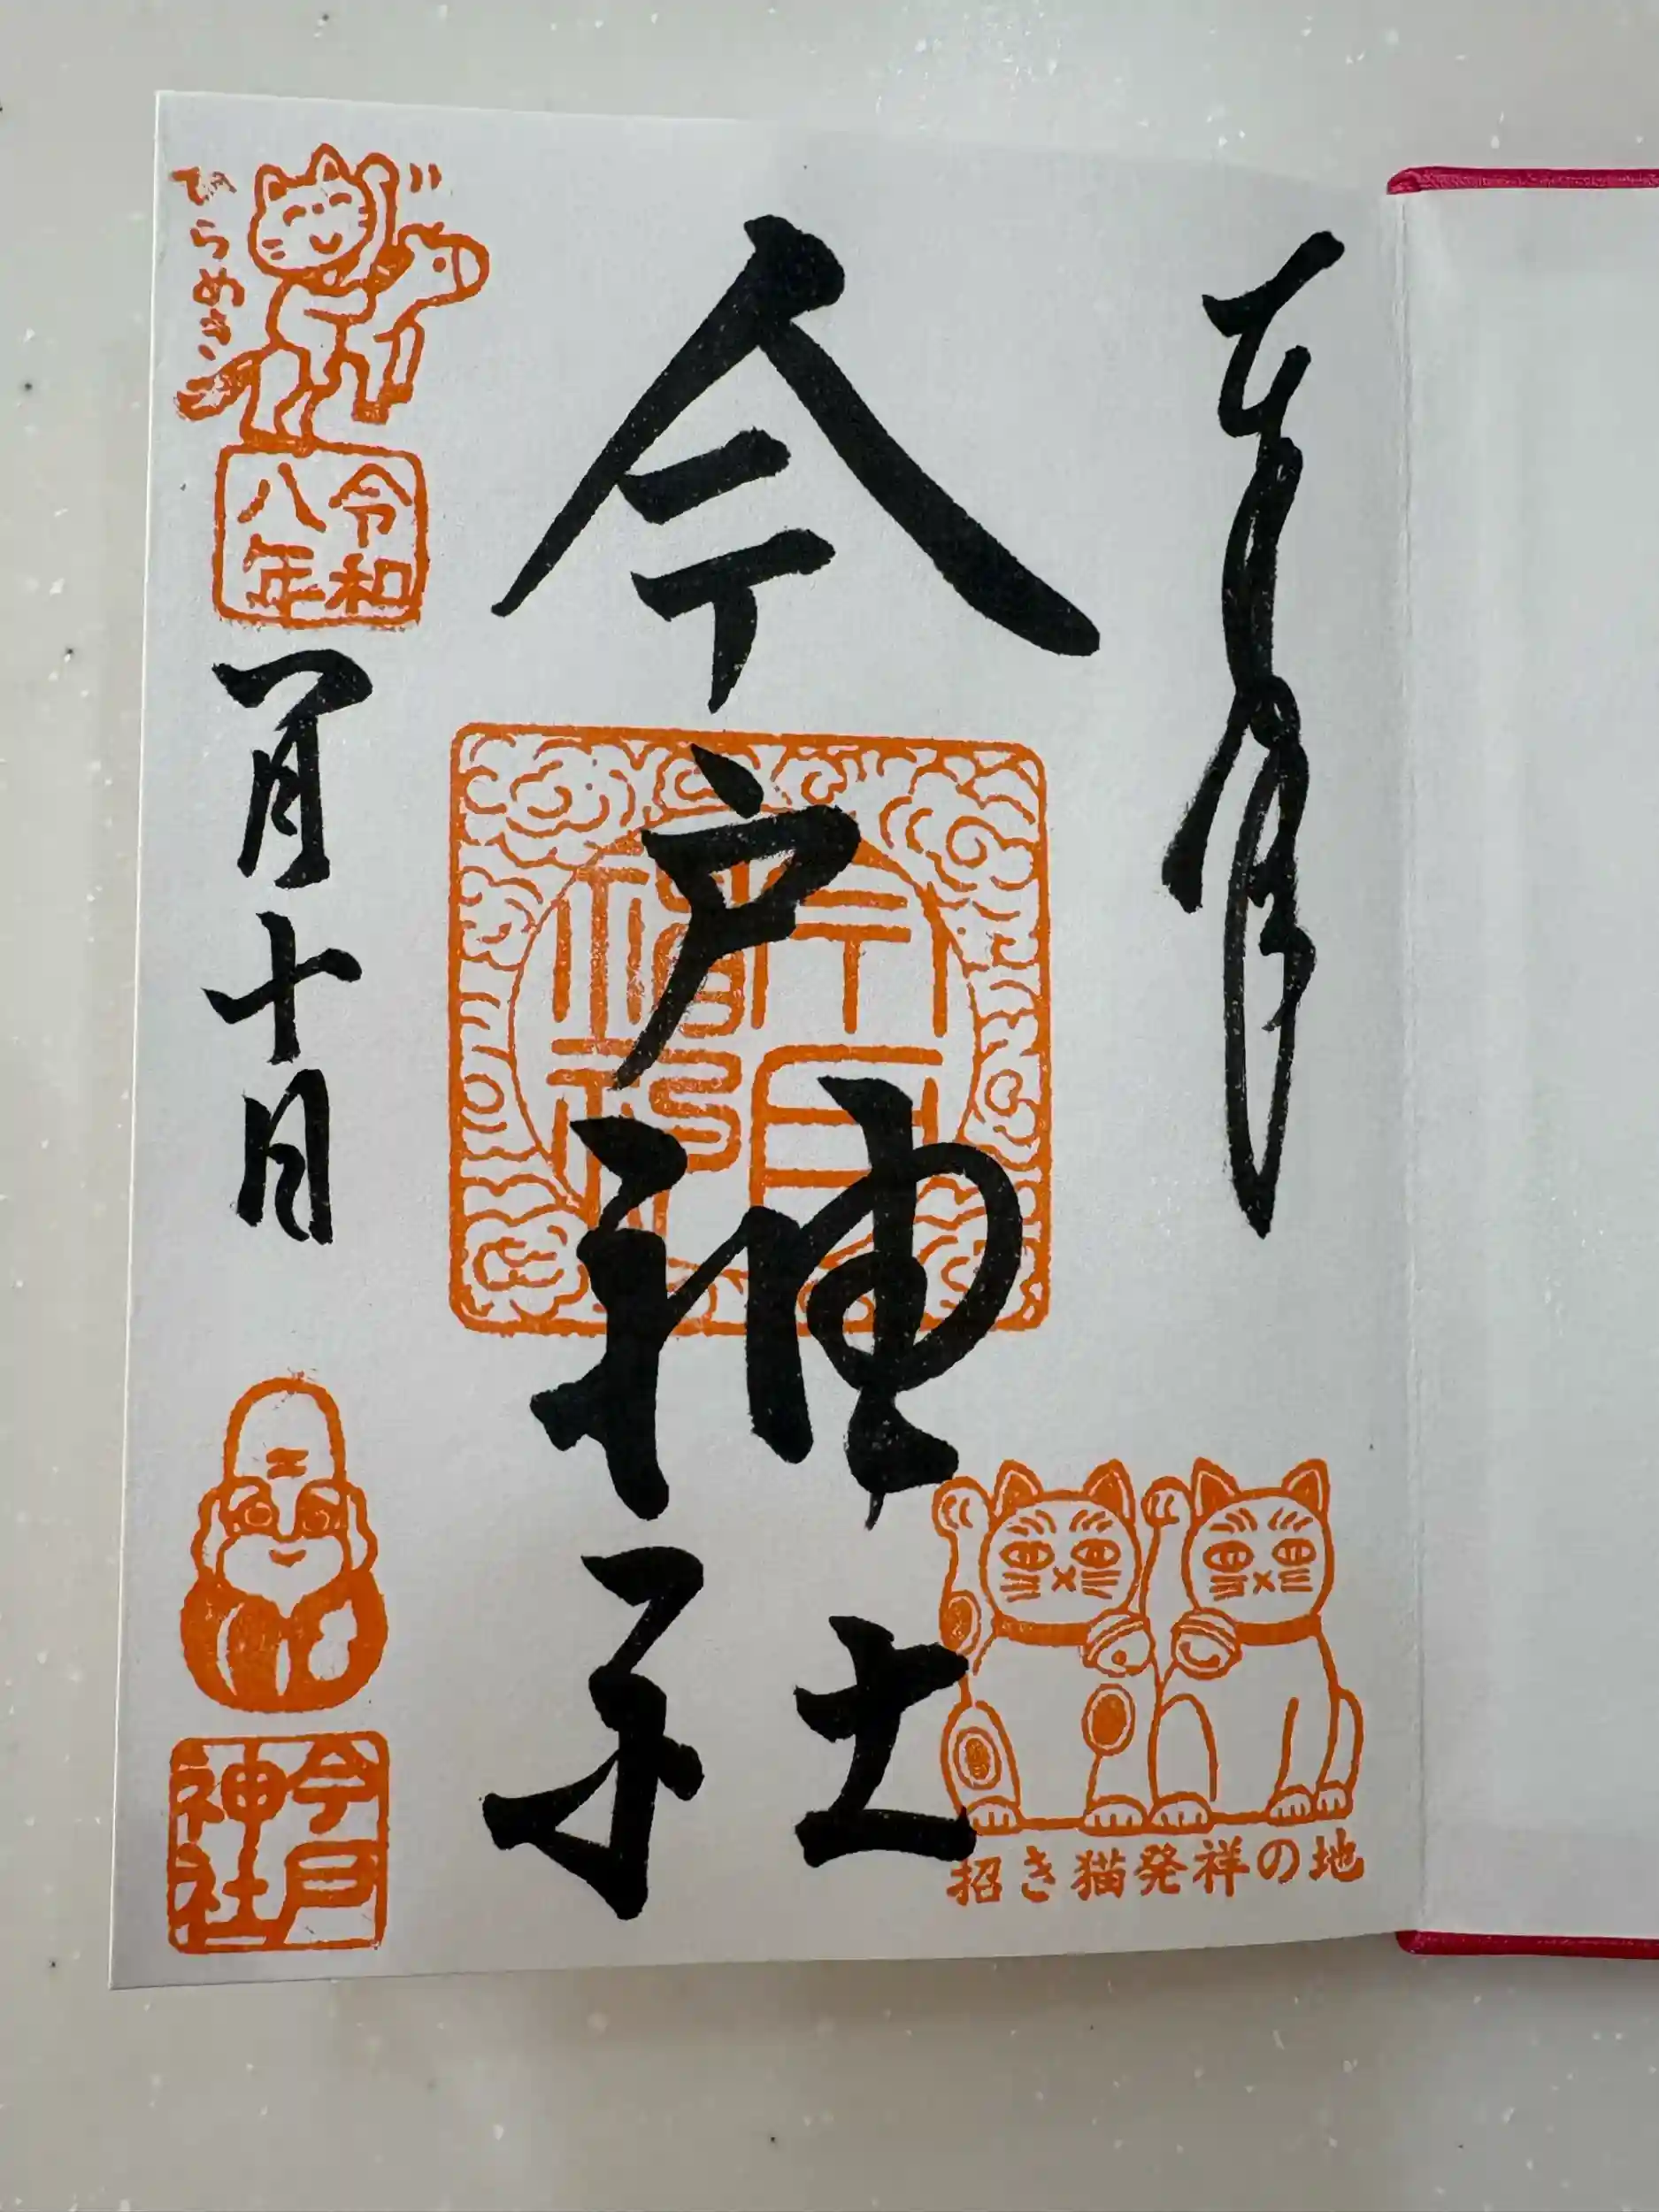 奉拝
今戸神社
今戸神社
招き猫発祥の地
ひらめき
令和
八年
一月十日
今戸
神社